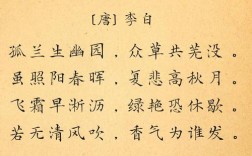 [唐] 李白
孤兰生幽园，众草共芜没。
虽照阳春晖，复悲高秋月。
飞霜早淅沥，绿艳恐休歇。
若无清风吹，香气为谁发。